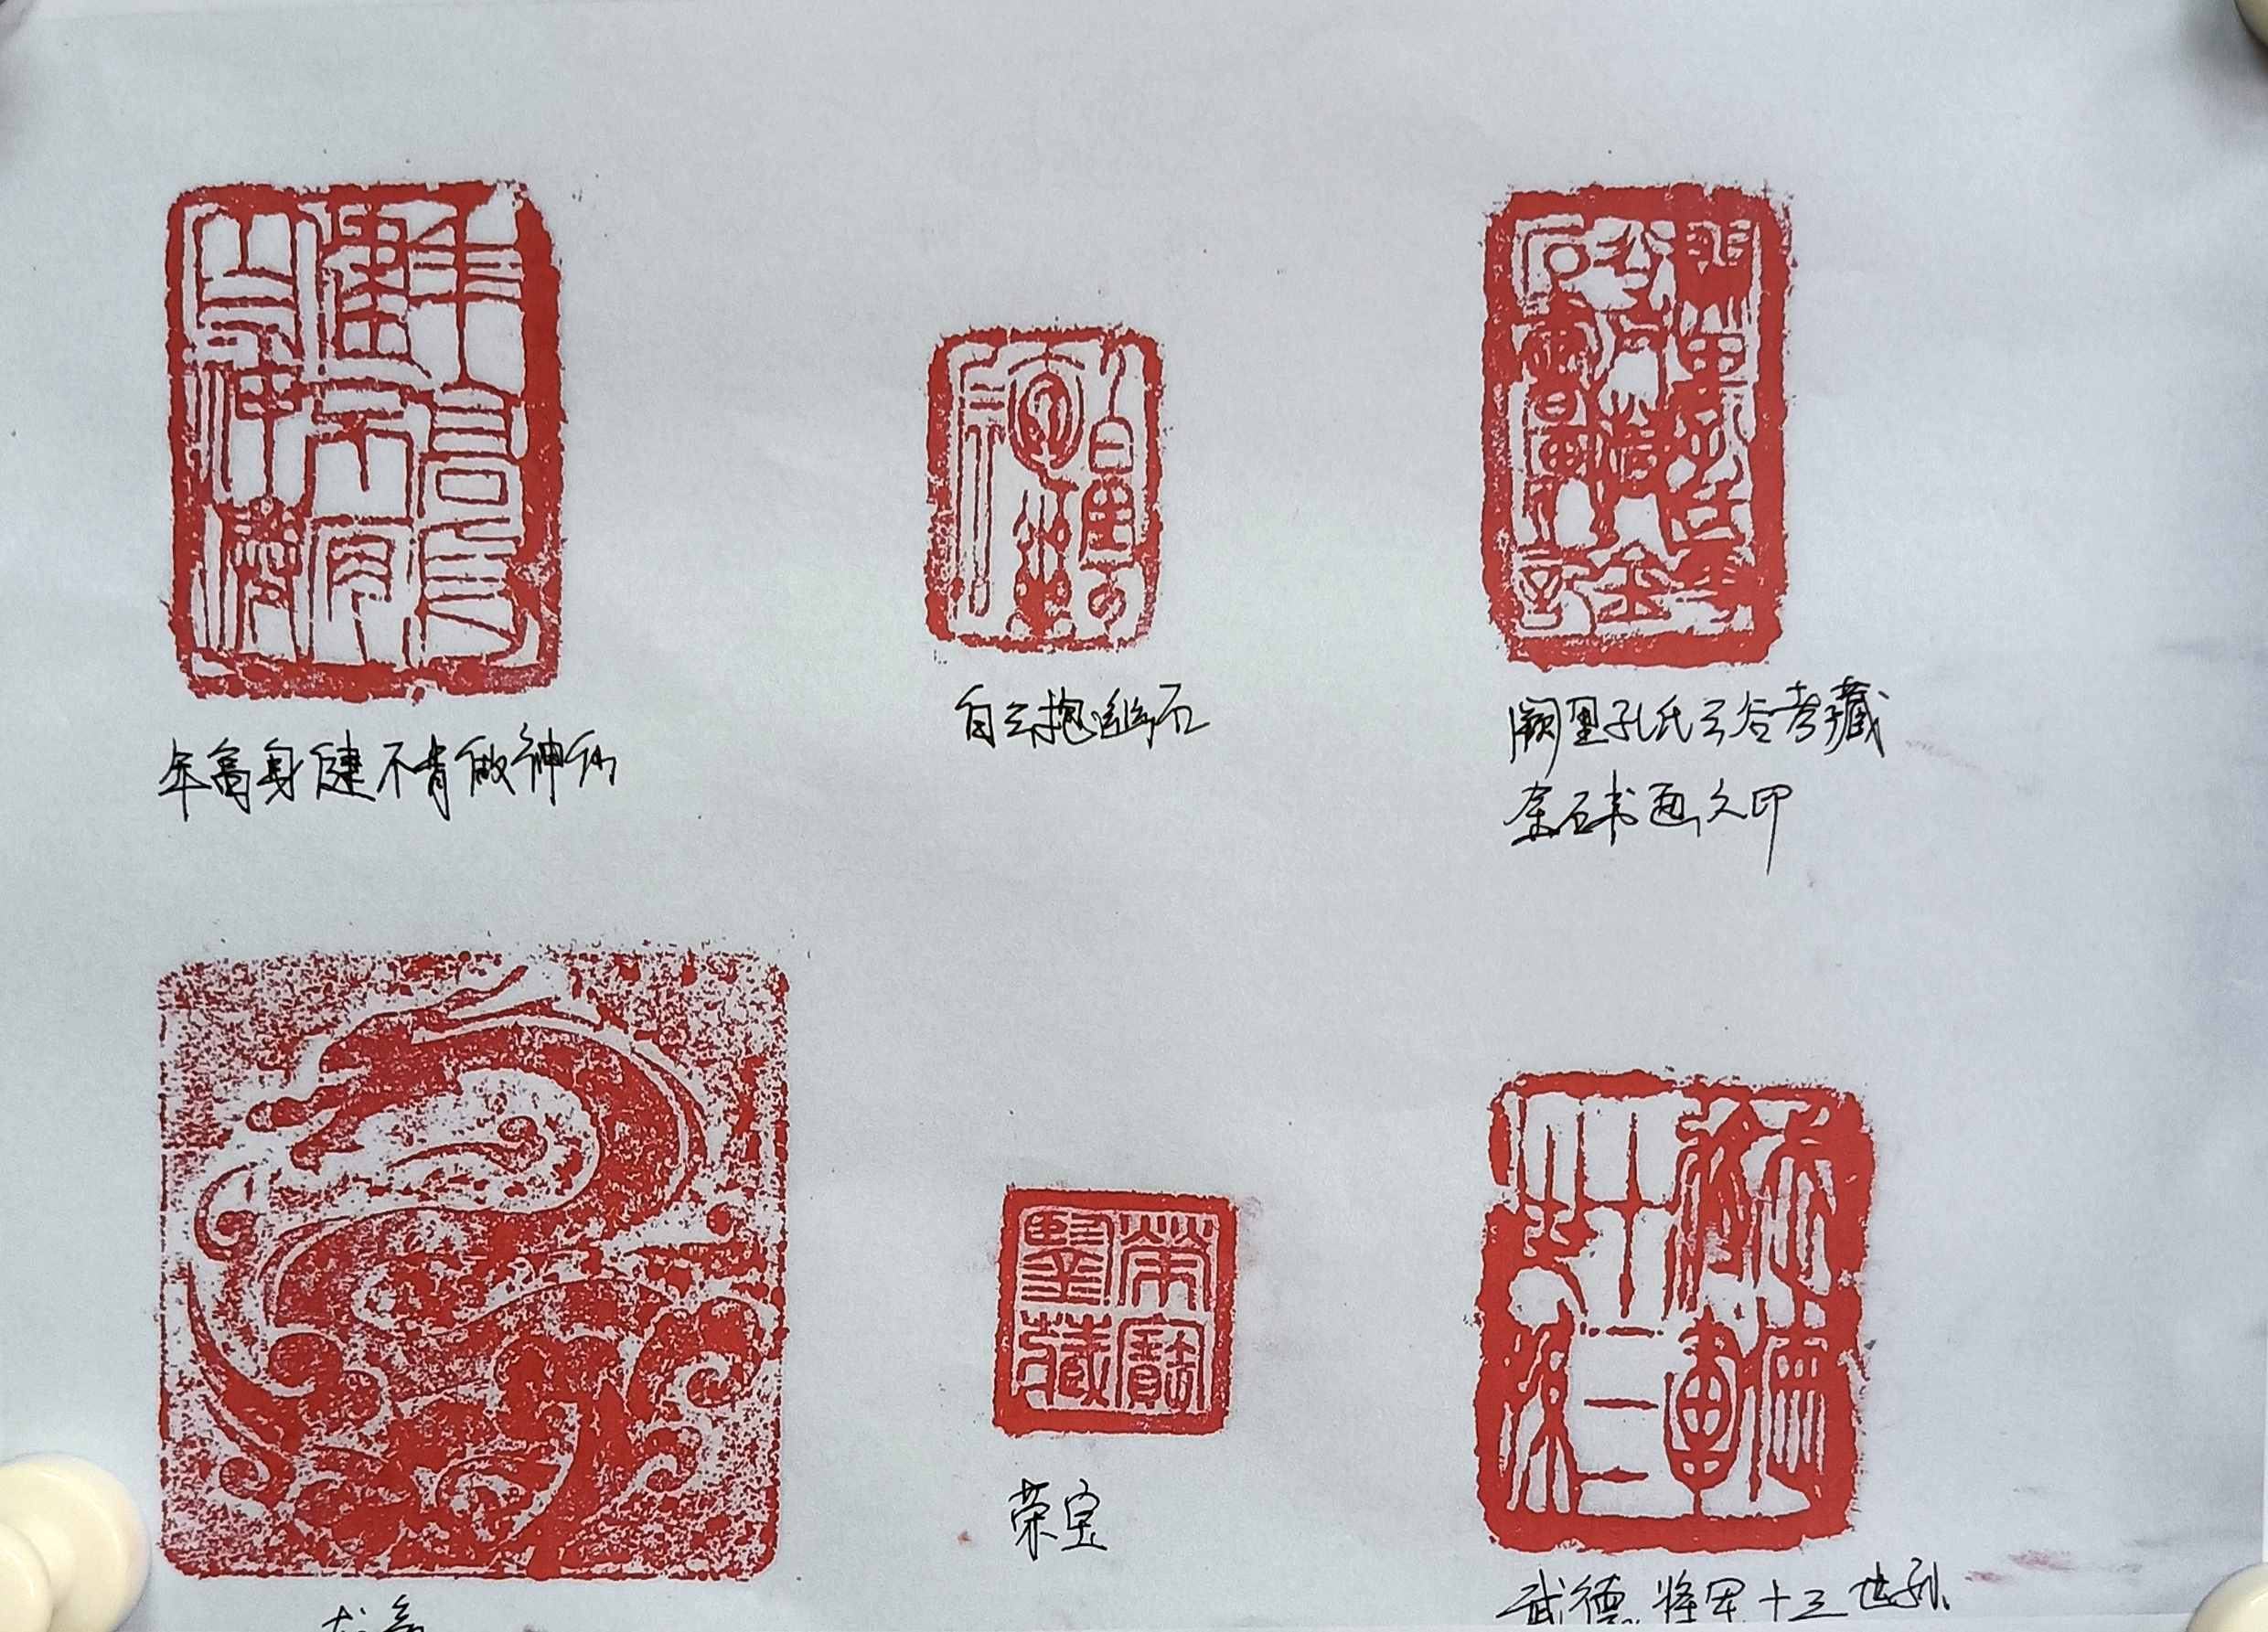 年高身健不肯做神仙
白云抱幽石
阙里孔氏云谷考藏
金石书画之印
榮寶
鑒藏
荣宝
武德将军十三世孙